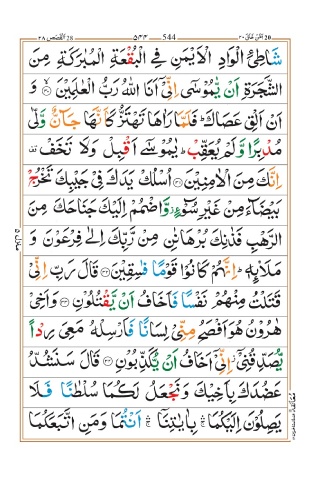 امن خلق ٢٠ ٥٤٤ 544 القصص ٢٨
شَاطِئِ الْوَادِ الْاَيْمَنِ فِي الْبُقْعَةِ الْمُبٰرَكَةِ مِنَ
الشَّجَرَةِ اَنْ يّٰمُوْسٰۤى اِنِّيْۤ اَنَا اللّٰهُ رَبُّ الْعٰلَمِيْنَ ۙ‏﴿۳۰﴾ وَ
اَنْ اَلْقِ عَصَاكَ ؕ فَلَمَّا رَاٰهَا تَهْتَزُّ كَاَنَّهَا جَآنٌّ وَّلّٰى
مُدْبِرًا وَّلَمْ يُعَقِّبْ ؕ يٰمُوْسٰۤى اَقْبِلْ وَلَا تَخَفْ قف
اِنَّكَ مِنَ الْاٰمِنِيْنَ ‏﴿۳۱﴾ اُسْلُكْ يَدَكَ فِيْ جَيْبِكَ تَخْرُجْ
بَيْضَآءَ مِنْ غَيْرِ سُوْٓءٍ ۫ وَّاضْمُمْ اِلَيْكَ جَنَاحَكَ مِنَ
الرَّهْبِ فَذٰنِكَ بُرْهَانٰنِ مِنْ رَّبِّكَ اِلٰى فِرْعَوْنَ وَ
مَلَا۟ئِهٖ ؕ اِنَّهُمْ كَانُوْا قَوْمًا فٰسِقِيْنَ ‏﴿۳۲﴾ قَالَ رَبِّ اِنِّيْ
قَتَلْتُ مِنْهُمْ نَفْسًا فَاَخَافُ اَنْ يَّقْتُلُوْنِ ‏﴿۳۳﴾ وَاَخِيْ
هٰرُوْنُ هُوَ اَفْصَحُ مِنِّيْ لِسَانًا فَاَرْسِلْهُ مَعِيَ رِدْاً
يُّصَدِّقُنِيْۤ ؗ اِنِّيْۤ اَخَافُ اَنْ يُّكَذِّبُوْنِ ‏﴿۳۴﴾ قَالَ سَنَشُدُّ
عَضُدَكَ بِاَخِيْكَ وَنَجْعَلُ لَكُمَا سُلْطٰنًا فَلَا
يَصِلُوْنَ اِلَيْكُمَا ۛۚ بِاٰيٰتِنَاۤ ۛۚ اَنْتُمَا وَمَنِ اتَّبَعَكُمَا